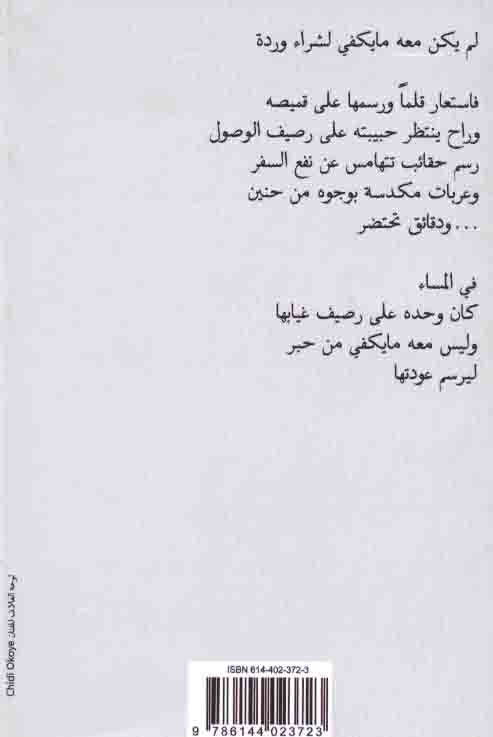 لم يكن معه مايكفي لشراء وردة
فاستعار قلماً ورسمها على قميصه
وراح ينتظر حبيبته على رصيف الوصول
رسم حقائب تتهامس عن نفع السفر
وعربات مكدسة بوجوه من حنين
ودقائق تحتضر...
في المساء
كان وحده على رصيف غيابها
وليس معه مايكفي من حبر
ليرسم عودتها
لوحة الغلاف للفنان Chidi Okoye
ISBN 614-402-372-3
9 786144 023723